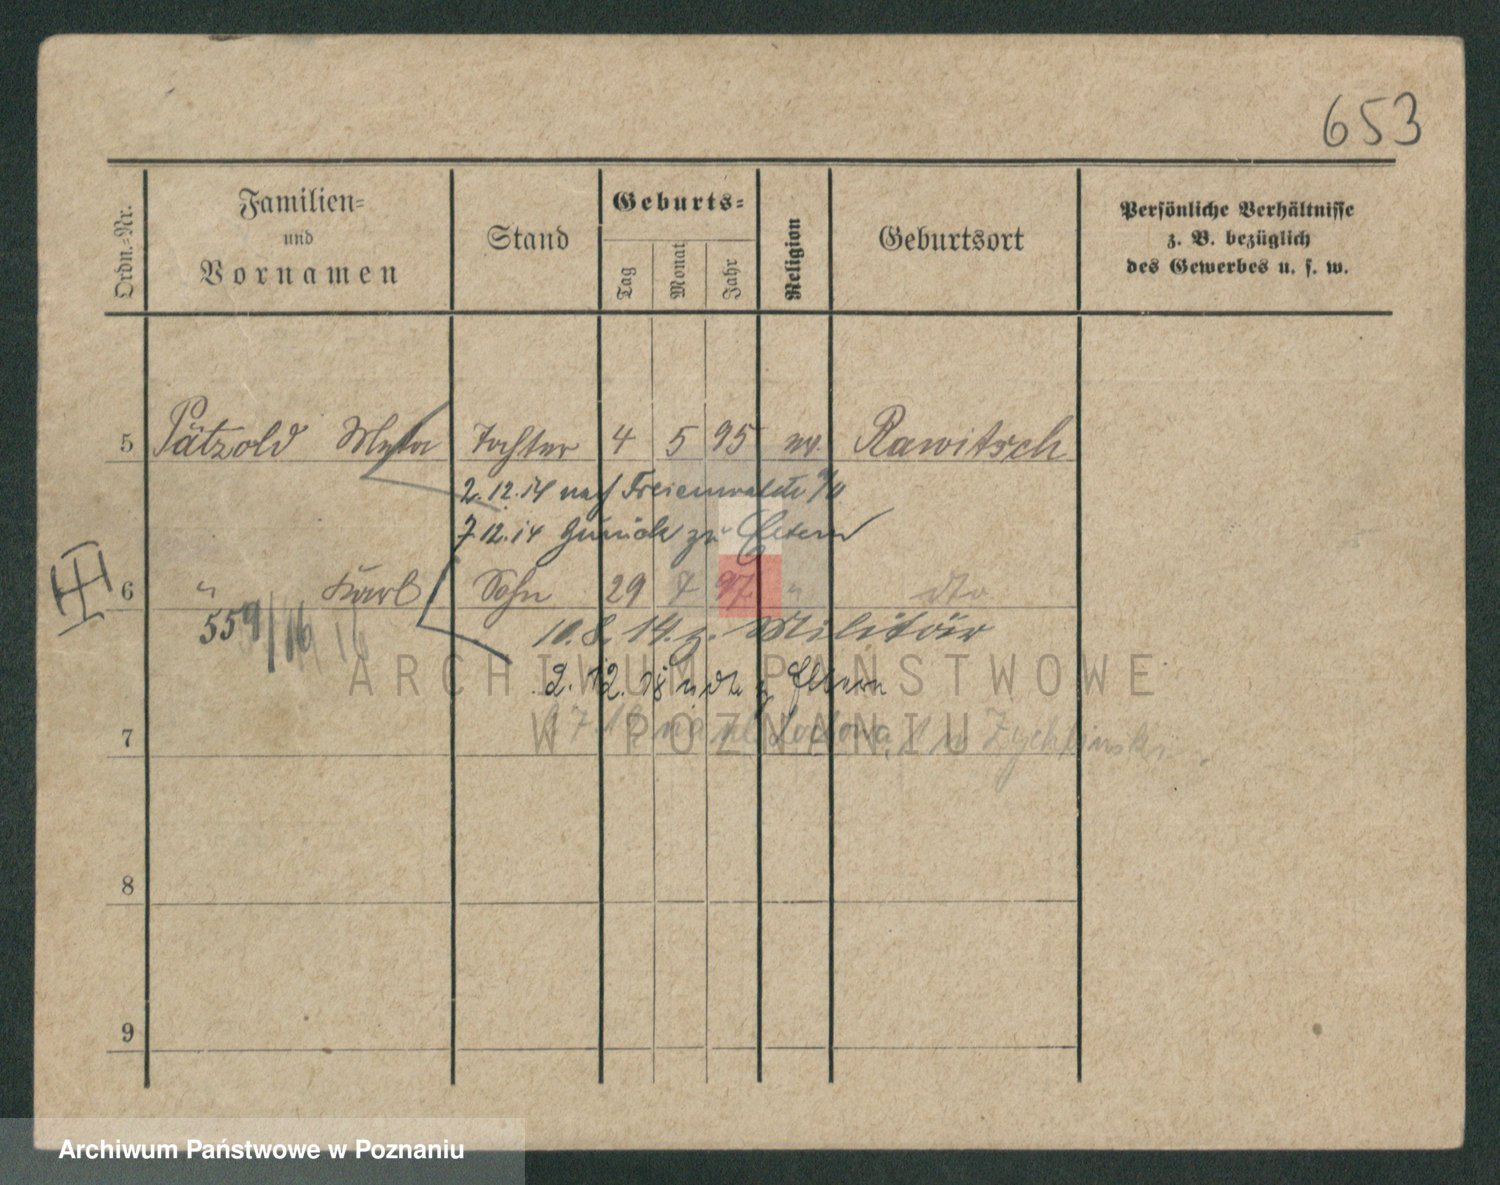 653
Ordn.-Nr.
Familien-
und
Vornamen
Stand
Geburts-
Tag
Monat
Jahr
Religion
Geburtsort
Persönliche Verhältnisse
z. B. bezüglich
des Gewerbes u. s. w.
5 Pätzold Meta Tochter 4 5 95 ev. Rawitsch
2.12.14 nach Freienwalde a/O
7.12.14 Zurück zu Eltern
6 " Karl Sohn 29 7 97 " dto
559/16
10.8.14. z. Militär
2.12.18 z Eltern
7
8
9
ARCHIWUM PAŃSTWOWE
W POZNANIU
Archiwum Państwowe w Poznaniu